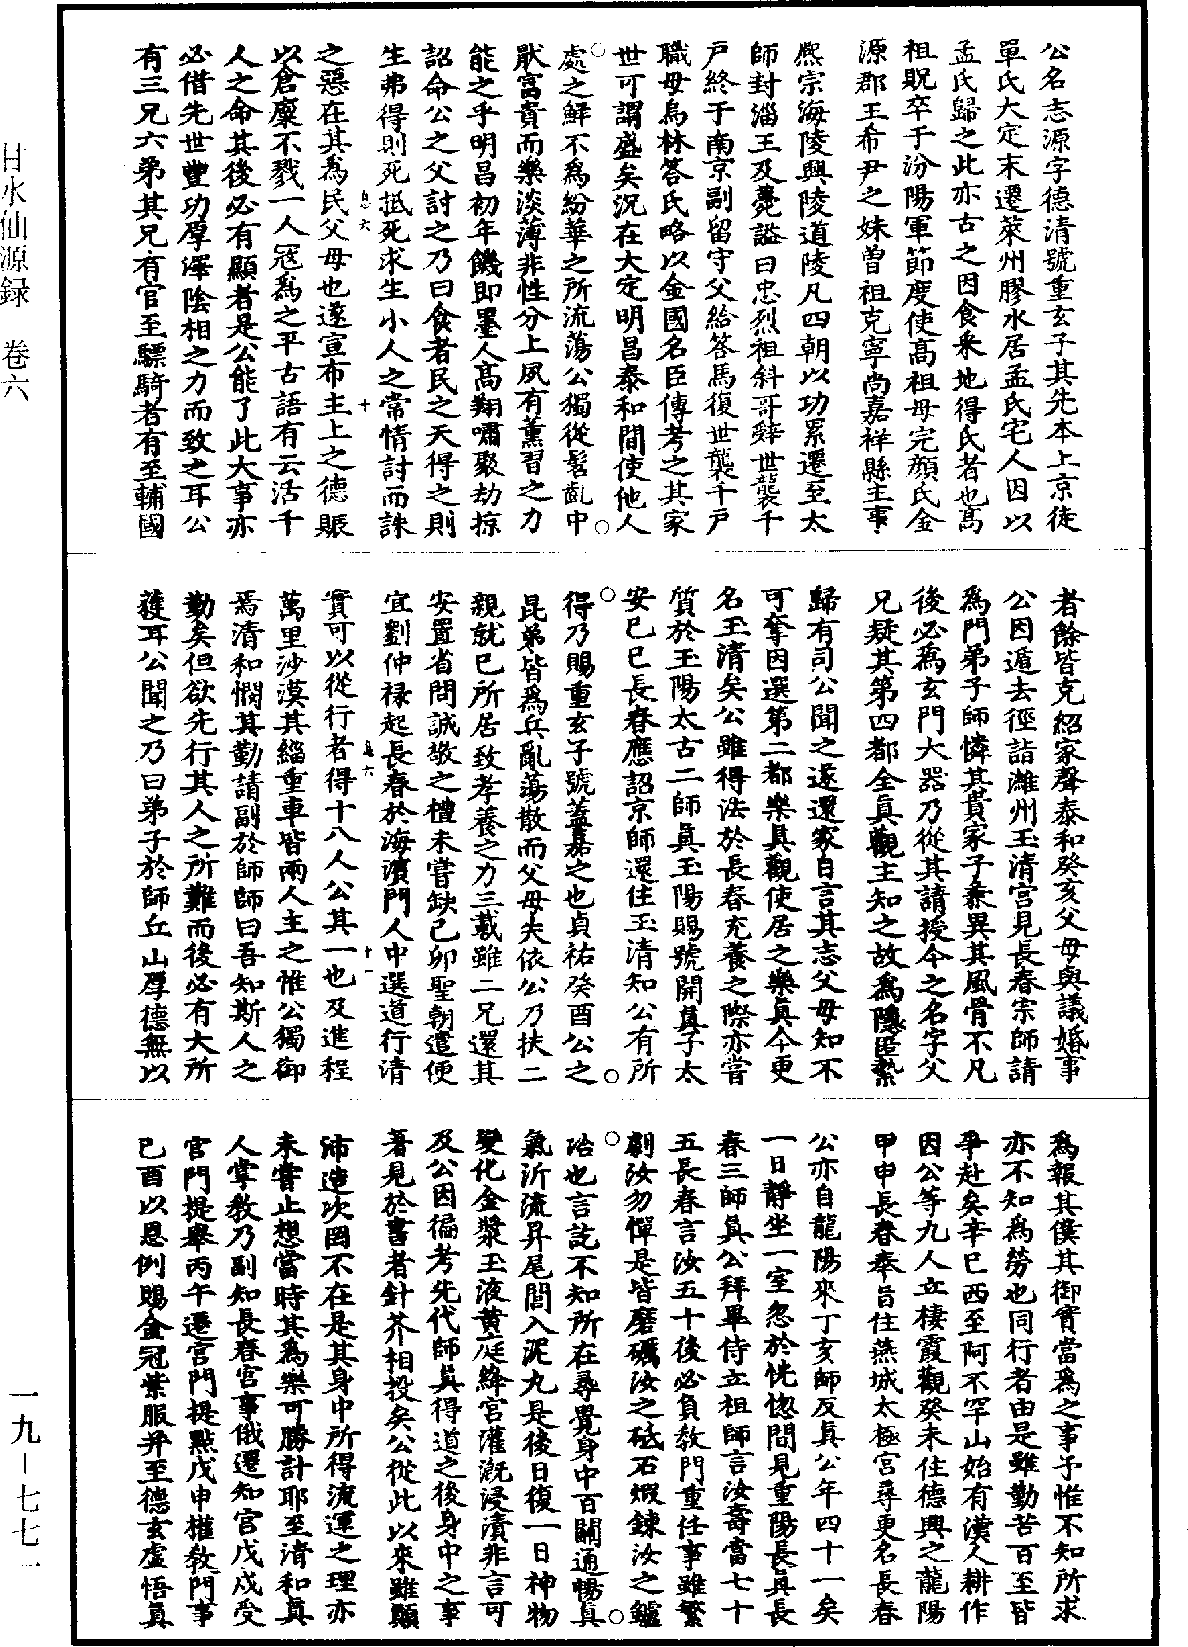 公名志源字德清號重玄子其先本上京徒
單氏大定末遷萊州膠水居孟氏宅人因以
孟氏歸之此亦古之因食采地得氏者也高
祖貺卒于汾陽軍節度使高祖母完顏氏金
源郡王希尹之妹曾祖克寧尚嘉祥縣主事
熙宗海陵興陵道陵凡四朝以功累遷至太
師封淄王及薨諡曰忠烈祖斜哥辭世襲千
戶終于南京副留守父給答馬復世襲千戶
職母烏林答氏略以金國名臣傳考之其家
世可謂盛矣況在大定明昌泰和間使他人
處之鮮不為紛華之所流蕩公獨從髫齓中
猒富貴而樂淡薄非性分上夙有薰習之力
能之乎明昌初年饑即墨人高翔嘯聚劫掠
詔命公之父討之乃曰食者民之天得之則
生弗得則死抵死求生小人之常情討而誅
之惡在其為民父母也遂宣布主上之德賑
以倉廩不戮一人寇為之平古語有云活千
人之命其後必有顯者是公能了此大事亦
必借先世豐功厚澤陰相之力而致之耳公
有三兄六弟其兄有官至驃騎者有至輔國
者餘皆克紹家聲泰和癸亥父母與議婚事
公因遁去徑詣濰州玉清宮見長春宗師請
為門弟子師憐其貴家子兼異其風骨不凡
後必為玄門大器乃從其請授今之名字父
兄疑其第四都全真觀主知之故為隱匿縶
歸有司公聞之遂還家自言其志父母知不
可奪因選第二都樂真觀使居之樂真今更
名玉清矣公雖得法於長春充養之際亦嘗
質於玉陽太古二師真玉陽賜號開真子太
安己巳長春應詔京師還住玉清知公有所
得乃賜重玄子號蓋嘉之也貞祐癸酉公之
昆弟皆為兵亂蕩散而父母失依公乃扶二
親就已所居致孝養之力三載雖二兄還其
安置省問誠敬之禮未嘗缺己卯聖朝遣便
宜劉仲祿起長春於海濱門人中選道行清
實可以從行者得十八人公其一也及進程
萬里沙漠其緇重車皆兩人主之惟公獨御
焉清和憫其勤請副於師師曰吾知斯人之
勤矣但欲先行其人之所難而後必有大所
獲耳公聞之乃曰弟子於師丘山厚德無以
為報其僕其御實當為之事予惟不知所求
亦不知為勞也同行者由是雖勤苦百至皆
爭赴矣辛巳西至阿不罕山始有漢人耕作
因公等九人立棲霞觀癸未住德興之龍陽
甲申長春奉旨住燕城太極宮尋更名長春
公亦自龍陽來丁亥師反真公年四十一矣
一日靜坐一室忽於恍惚間見重陽長真長
春三師真公拜畢侍立祖師言汝壽當七十
五長春言汝五十後必負教門重任事雖繁
劇汝勿憚是皆磨礪汝之砥石煅鍊汝之鑪
冶也言訖不知所在尋覺身中百關通暢真
氣沂流昇尾閭入泥丸是後日復一日神物
變化金漿玉液黃庭絳宮灌溉浸漬非言可
及公因徧考先代師真得道之後身中之事
著見於書者針芥相投矣公從此以來雖顛
沛造次罔不在是其身中所得流運之理亦
未嘗止想當時其為樂可勝計耶至清和真
人掌教乃副知長春宮事俄遷知宮戊戌受
宮門提舉丙午遷宮門提點戊申權教門事
己酉以恩例賜金冠紫服并至德玄虛悟真
甘水仙源録　卷六
一九—七七一